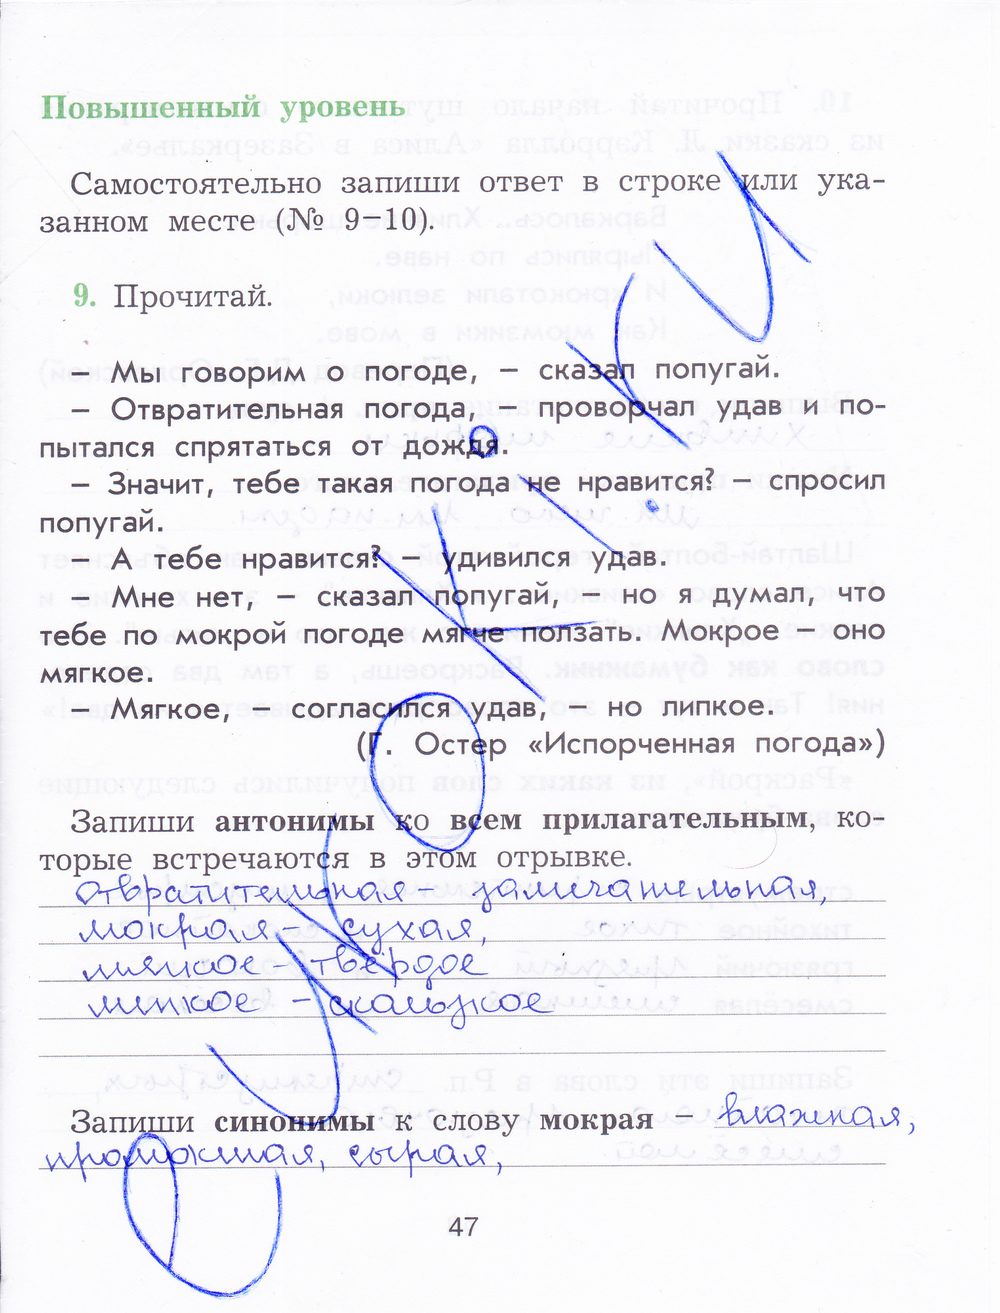 Повышенный уровень
Самостоятельно запиши ответ в строке или ука-
занном месте (№ 9–10).
9. Прочитай.
– Мы говорим о погоде, – сказал попугай.
– Отвратительная погода, – проворчал удав и по-
пытался спрятаться от дождя.
– Значит, тебе такая погода не нравится? – спросил
попугай.
– А тебе нравится? – удивился удав.
– Мне нет, – сказал попугай, – но я думал, что
тебе по мокрой погоде мягче ползать. Мокрое – оно
мягкое.
– Мягкое, – согласился удав, – но липкое.
(Г. Остер «Испорченная погода»)
Запиши антонимы ко всем прилагательным, ко-
торые встречаются в этом отрывке.
отвратительная – замечательная,
мокрая – сухая,
мягкое – твёрдое
липкое – скользкое
Запиши синонимы к слову мокрая влажная,
промокшая, сырая,
47